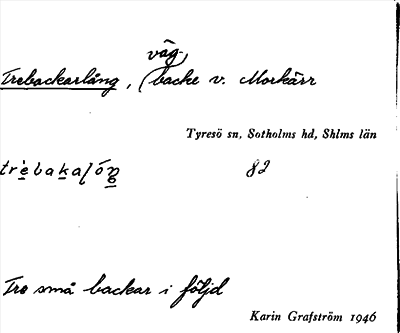 väg-,
Trebackarlång, (backe v. Morkärr
Tyresö sn, Sotholms hd, Shlms län
82
Tre små backar i följd
Karin Grafström 1946